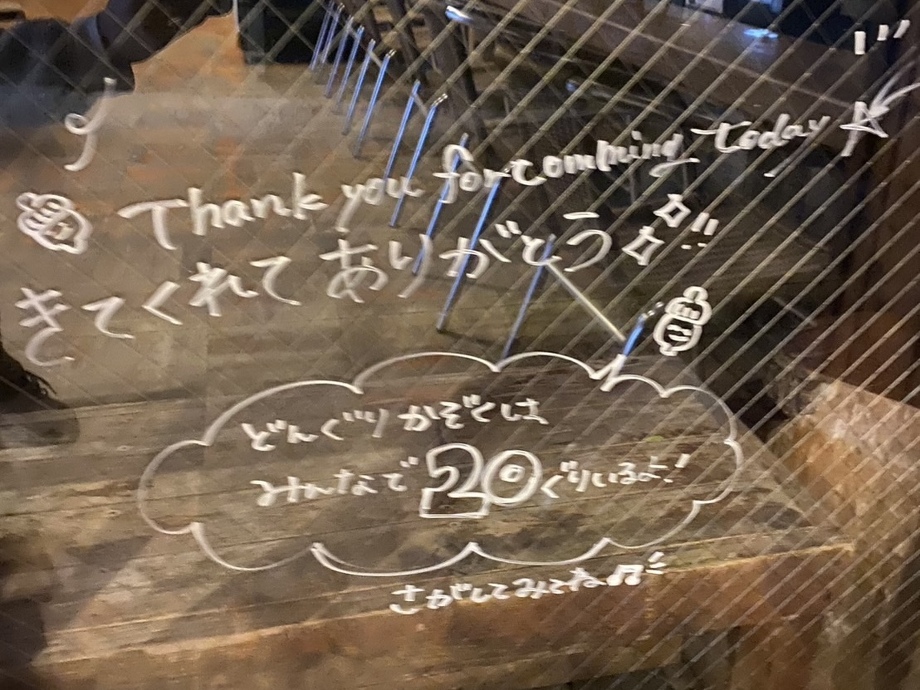 Thank you for comming today
きてくれて ありがとう!!
どんぐりかぞくは
みんなで20ぐりいるよ!
さがしてみてね♫